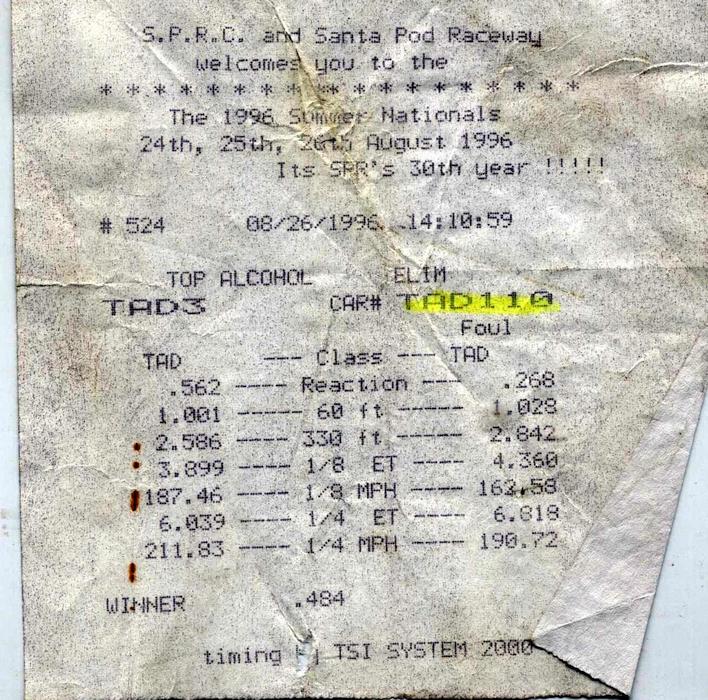 S.P.R.C. and Santa Pod Raceway
welcomes you to the
* * * * * * * * * * * * * * * * * *
The 1996 Summer Nationals
24th, 25th, 26th August 1996
Its SPR's 30th year !!!!!
# 524 08/26/1996 14:10:59
TOP ALCOHOL ELIM
TAD3 CAR# TAD110
Foul
TAD --- Class --- TAD
.562 ---- Reaction --- .268
1.001 ----- 60 ft ----- 1.028
2.586 ---- 330 ft ----- 2.842
3.899 ---- 1/8 ET ---- 4.360
187.46 ---- 1/8 MPH ---- 162.58
6.039 ---- 1/4 ET ---- 6.818
211.83 ---- 1/4 MPH ---- 190.72
WINNER .484
timing TSI SYSTEM 2000